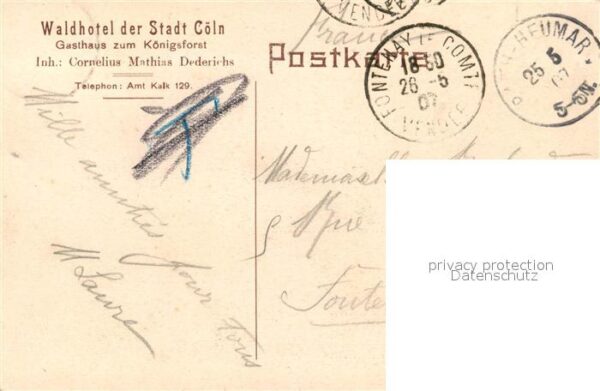 Waldhotel der Stadt Cöln
Gasthaus zum Königsforst
Inh.: Cornelius Mathias Dederichs
Telephon: Amt Kalk 129.
Postkarte
VENDEE
FONTENAY-LE-COMTE
18 30
26 - 5
07
VENDEE
HEUMAR
25 5
07
5-6N.
T
Mille amitiés pour tous
M Laure
Mademoiselle
5 Rue
Fonte
privacy protection
Datenschutz